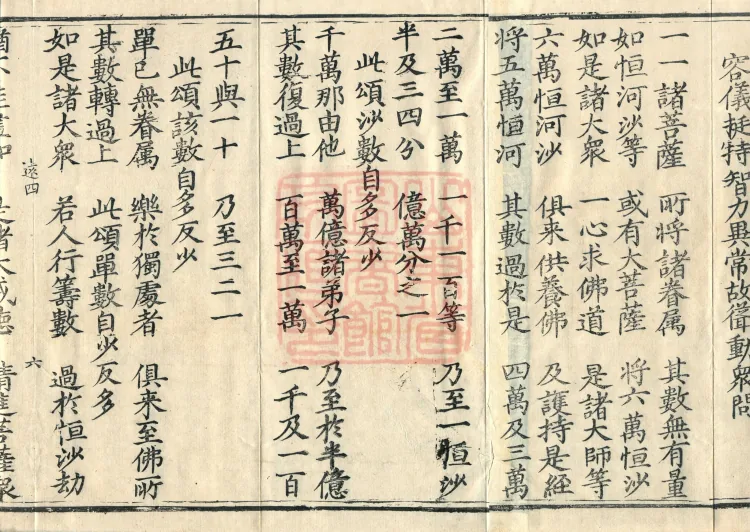 容儀挺特智力異常故聳動眾問
一一諸菩薩　所將諸眷属　其數無有量
如恒河沙等　或有大菩薩　將六萬恒沙
如是諸大衆　一心求佛道　是諸大師等
六萬恒河沙　俱来供養佛　及護持是經
将五萬恒河　其數過於是　四萬及三萬
二萬至一萬　一千一百等　乃至一恒沙
半及三四分　億萬分之一
此頌沙數自多反少
千萬那由他　萬億諸弟子　乃至於半億
其數復過上　百萬至一萬　一千及一百
五十與一十　乃至三二一
此頌該數自多反少
單己無眷属　樂於獨處者　俱来至佛所
其數轉過上　此頌單數自少反多
如是諸大衆　若人行籌數　過於恒沙劫
六
是諸大威德　精進菩薩衆